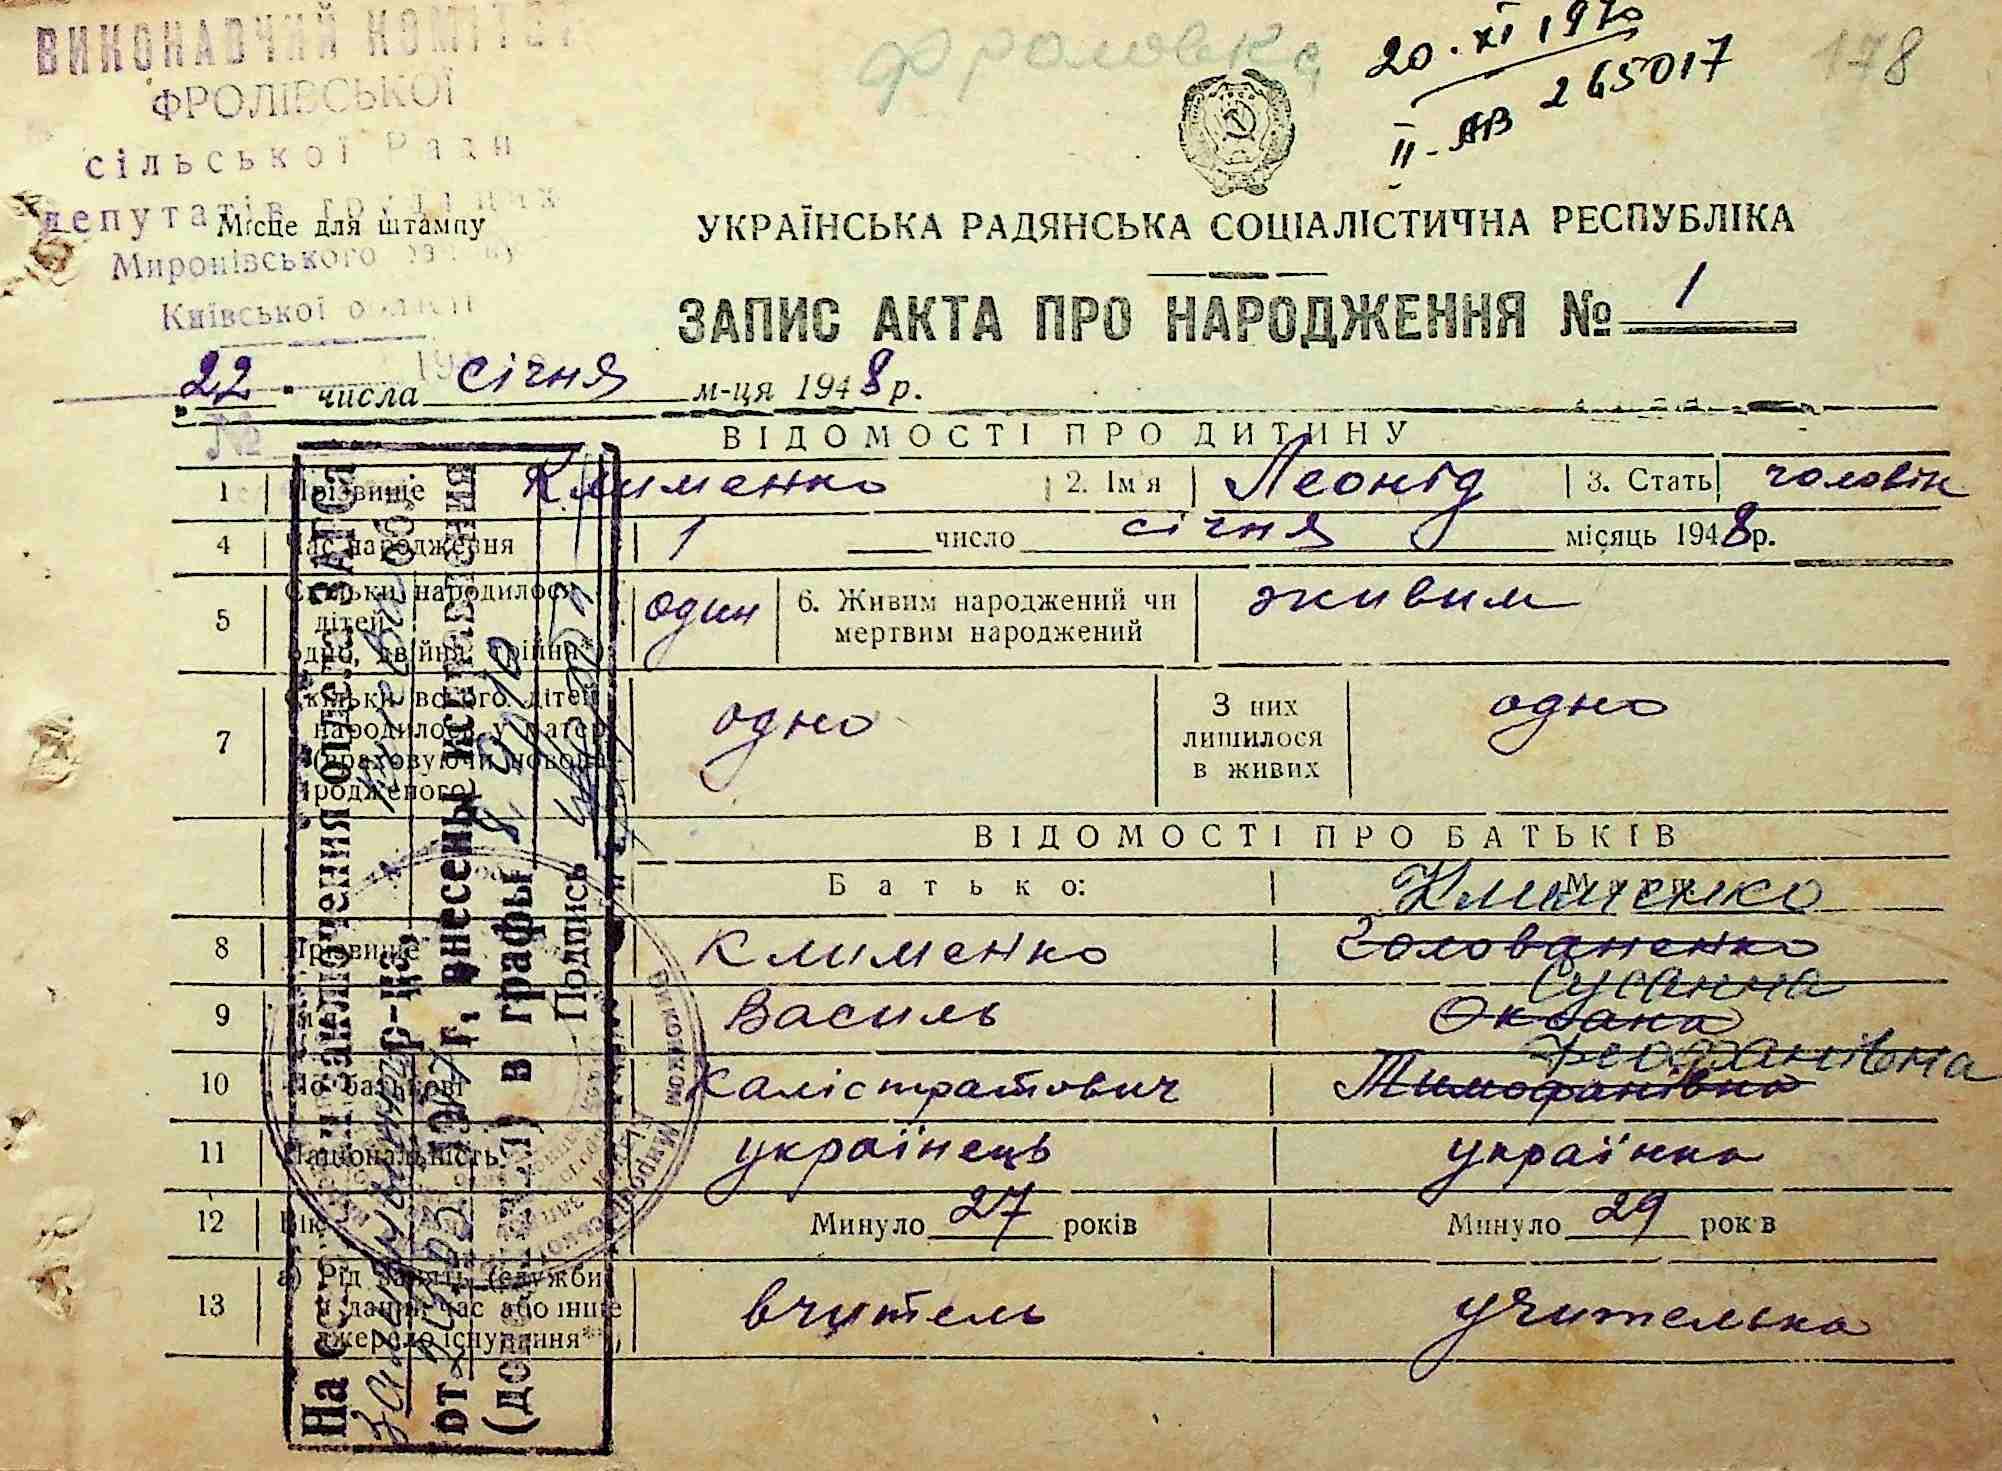 ВИКОНАВЧИЙ КОМІТЕТ
ФРОЛІВСЬКОЇ
сільської Ради
депутатів трудящих
Миронівського
Київської області
Місце для штампу
Фроловка
20. XI 1970
II - АВ 265017
178
УКРАЇНСЬКА РАДЯНСЬКА СОЦІАЛІСТИЧНА РЕСПУБЛІКА
ЗАПИС АКТА ПРО НАРОДЖЕННЯ № 1
22 числа січня м-ця 1948 р.
№
ВІДОМОСТІ ПРО ДИТИНУ
1 Прізвище Клименко 2. Ім'я Леонід 3. Стать чоловік
4 Час народження 1 число січня місяць 1948 р.
5 Скільки народилося дітей одно, двійня, трійня*) один 6. Живим народжений чи мертвим народжений живим
7 Скільки всього дітей народилося у матері (враховуючи новонародженого) одно З них лишилося в живих одно
ВІДОМОСТІ ПРО БАТЬКІВ
Батько: Мати:
Клименко
8 Прізвище Клименко Голованенко
Сусанна
9 Василь Оксана
Феофанівна
10 По батькові Калістратович Тимофанівна
11 Національність українець українка
12 Вік Минуло 27 років Минуло 29 років
13 а) Рід занять (служби) в даний час або інше джерело існування**) вчитель учителька
На основании заключения отдела ЗАГСа
р-на, обл.
от г. внесены исправления
(дополнения) в графы 8, 9, 10
Подпись